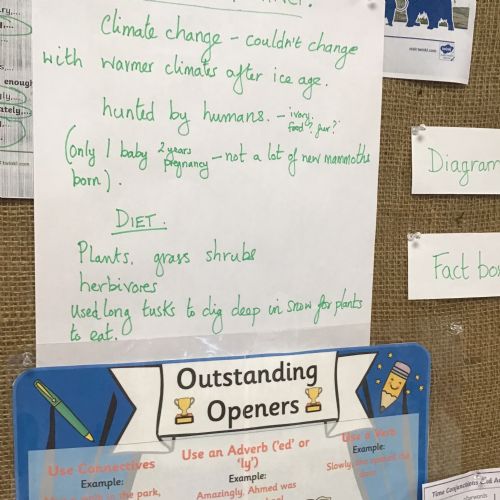 Climate change - couldn't change
with warmer climates after ice age.
hunted by humans. - ivory.
food? fur?
(only 1 baby 2 years
pregnancy - not a lot of new mammoths
born).
DIET.
Plants, grass shrubs
herbivores
Used long tusks to dig deep in snow for plants
to eat.
Diagram
Fact box
visit twinkl.com
Outstanding
Openers
Use Connectives
Example:
Use an Adverb ('ed' or
'ly')
Example:
Amazingly, Ahmed was
Use a Verb
Example:
Slowly,